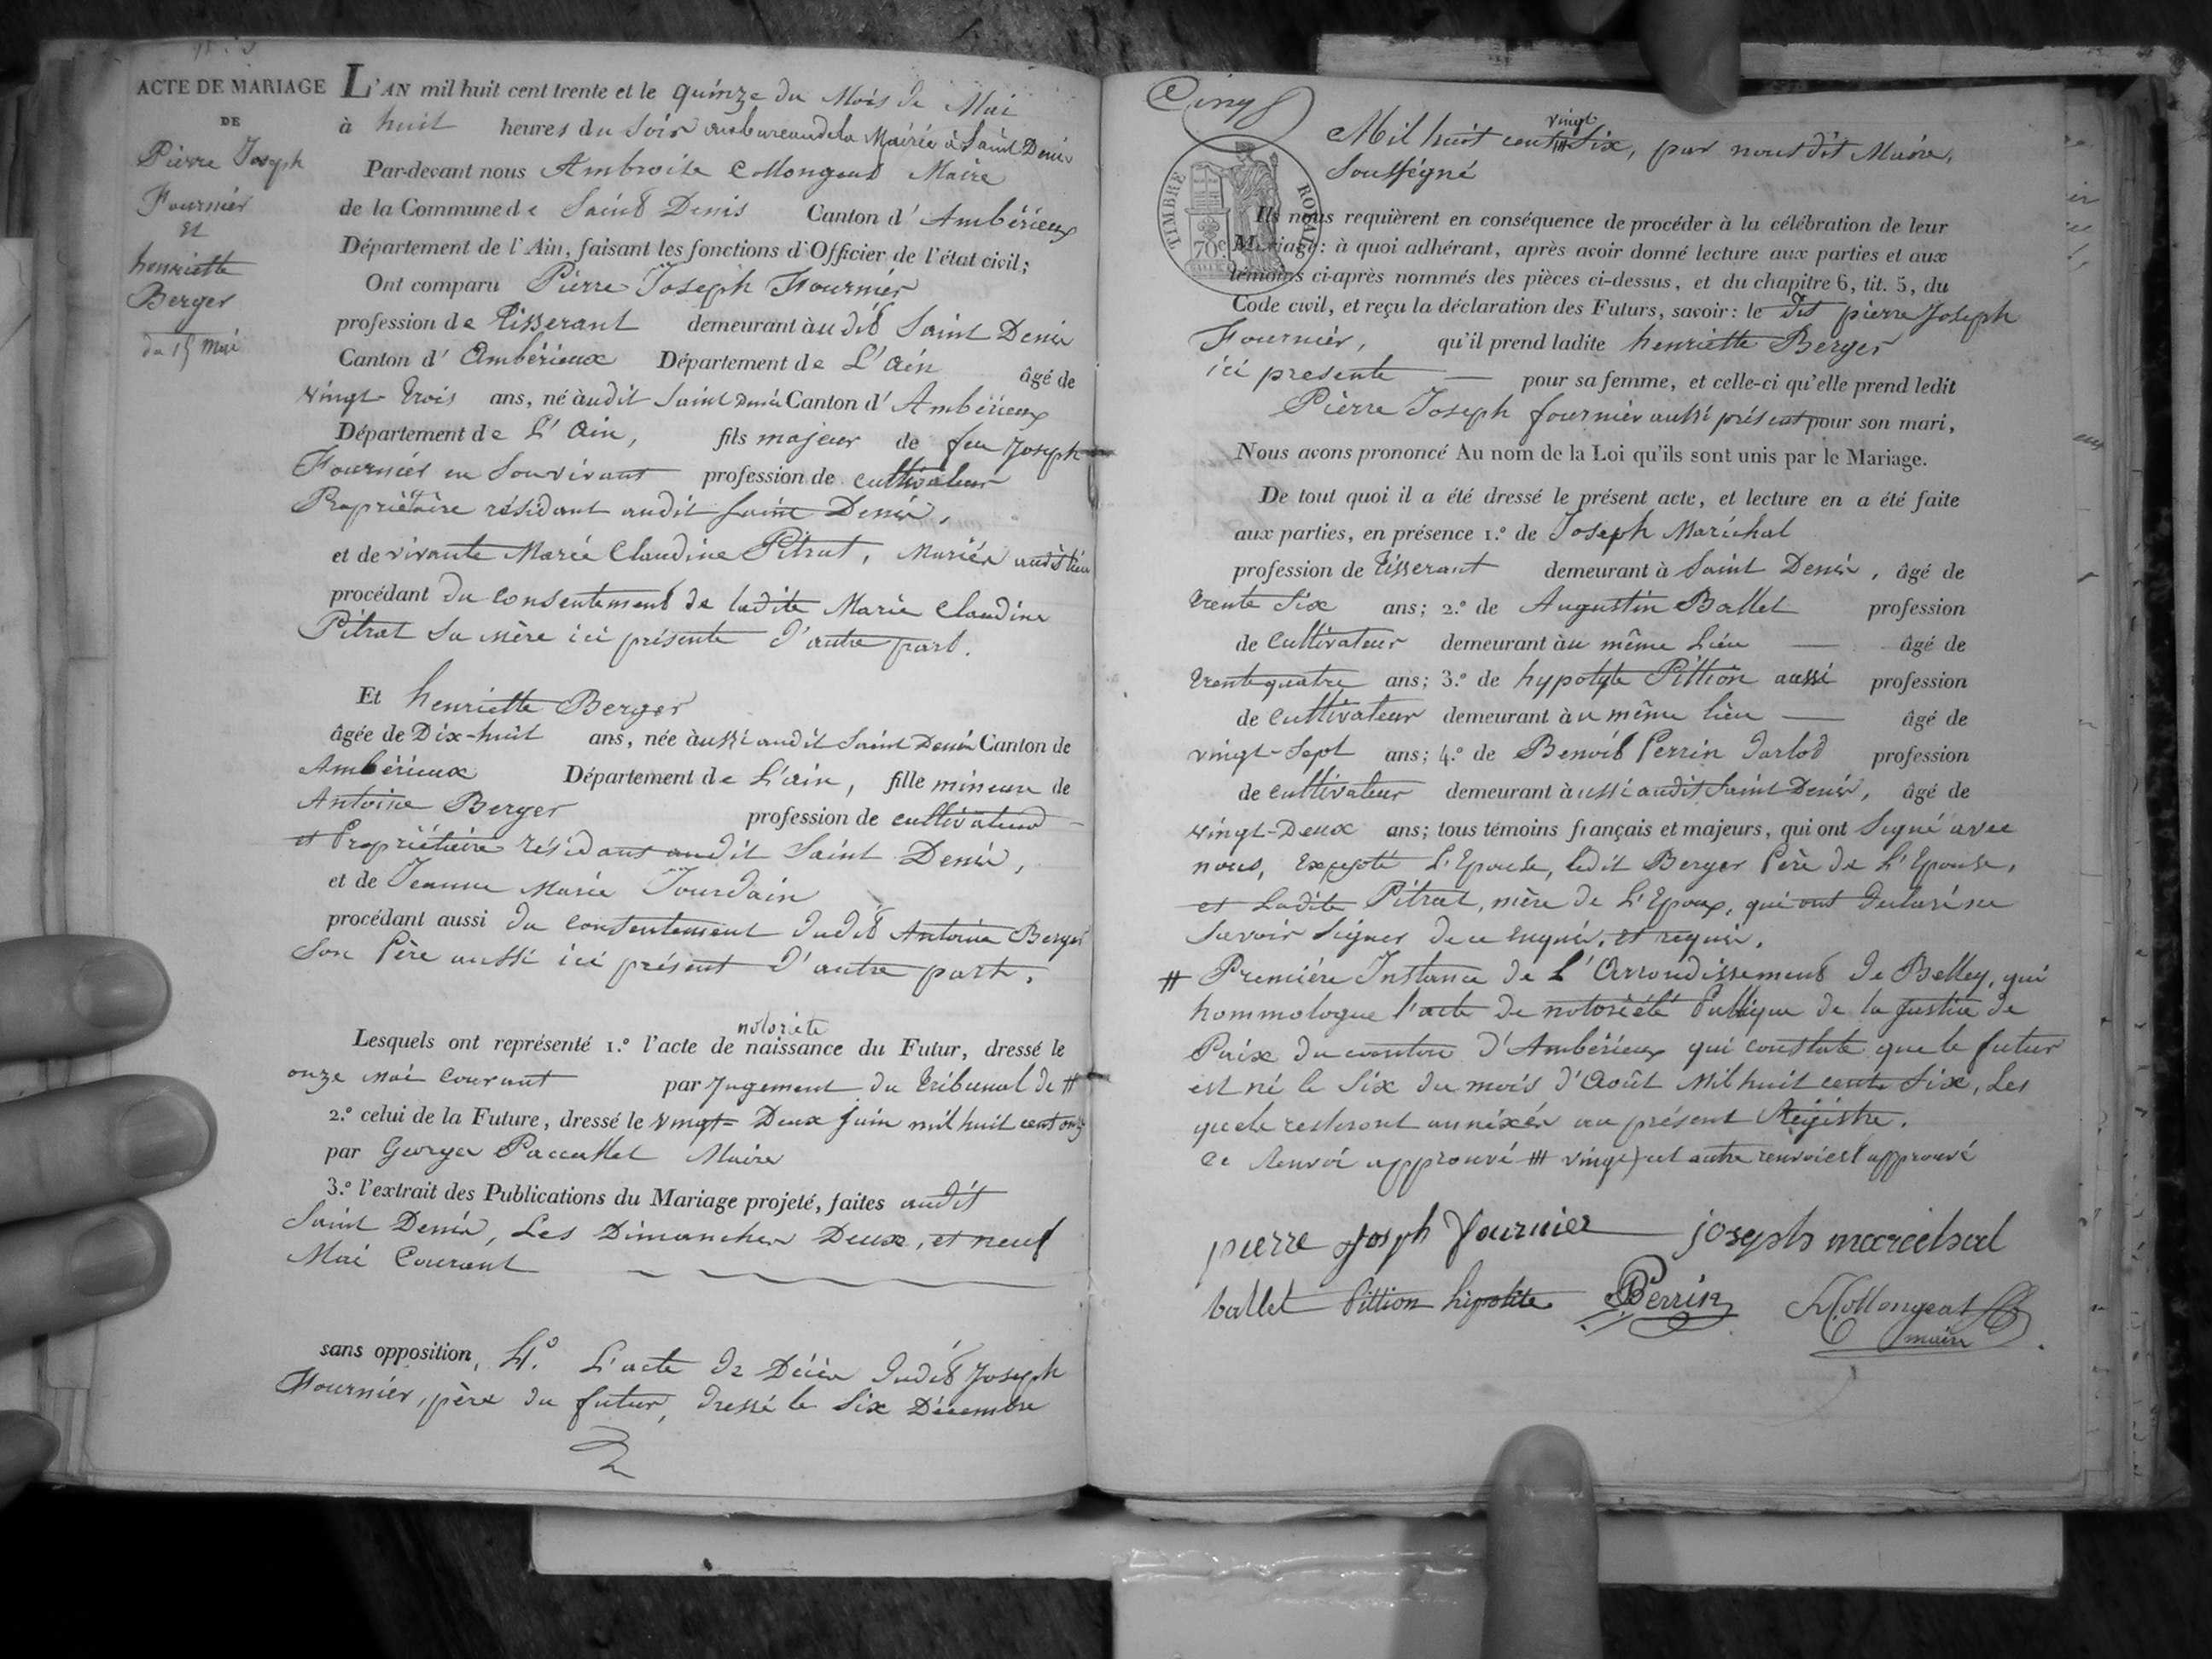 ACTE DE MARIAGE
DE
Pierre Joseph
Fournier
et
henriette
Berger
du 15 mai
L'AN mil huit cent trente et le quinze du Mois de Mai
à huit heures du soir au bureau de la Mairie à Saint Denis
Par-devant nous Ambroise Collongeat Maire
de la Commune de Saint Denis Canton d' Ambérieux
Département de l'Ain, faisant les fonctions d'Officier de l'état civil;
Ont comparu Pierre Joseph Fournier
profession de Tisserant demeurant àu dit Saint Denis
Canton d' Ambérieux Département de L'Ain âgé de
vingt-trois ans, né àudit Saint Denis Canton d' Ambérieux
Département de L'Ain, fils majeur de feu Joseph
Fournier en Son vivant profession de cultivateur
Propriétaire résidant audit Saint Denis,
et de vivante Marie Claudine Pitrat, Mariés audit lieu
procédant du consentement de ladite Marie Claudine
Pitrat sa mère ici présente d'autre part.
Et henriette Berger
âgée de Dix-huit ans, née àussi audit Saint Denis Canton de
Ambérieux Département de L'ain, fille mineure de
Antoine Berger profession de cultivateur
et Propriétaire résidant audit Saint Denis,
et de Jeanne Marie Jourdain
procédant aussi du consentement dudit Antoine Berger
Son Père aussi ici présent d'autre part.
notoriété
Lesquels ont représenté 1.º l'acte de naissance du Futur, dressé le
onze mai courant par Jugement du Tribunal de #
2.º celui de la Future, dressé le vingt-Deux juin mil huit cent onze
par George Paccallet Maire
3.º l'extrait des Publications du Mariage projeté, faites audit
Saint Denis, Les Dimanches Deux, et neuf
Mai Courant
sans opposition, 4.º L'acte de Décès dudit Joseph
Fournier, père du futur, dressé le Six Décembre
Cinq
TIMBRE ROYAL
70c
vingt
Mil huit cent # Six, par nous dit Maire,
Soussigné
Ils nous requièrent en conséquence de procéder à la célébration de leur
Mariage: à quoi adhérant, après avoir donné lecture aux parties et aux
témoins ci-après nommés des pièces ci-dessus, et du chapitre 6, tit. 5, du
Code civil, et reçu la déclaration des Futurs, savoir: le dit pierre Joseph
Fournier, qu'il prend ladite henriette Berger
ici presente — pour sa femme, et celle-ci qu'elle prend ledit
Pierre Joseph fournier aussi présent pour son mari,
Nous avons prononcé Au nom de la Loi qu'ils sont unis par le Mariage.
De tout quoi il a été dressé le présent acte, et lecture en a été faite
aux parties, en présence 1.º de Joseph Maréchal
profession de Tisserant demeurant à Saint Denis, âgé de
trente Six ans; 2.º de Augustin Ballet profession
de cultivateur demeurant àu même Lieu — âgé de
trente quatre ans; 3.º de hypolyte Pittion aussi profession
de cultivateur demeurant àu même lieu — âgé de
vingt-Sept ans; 4.º de Benoit Perrin Jarlod profession
de cultivateur demeurant àussi audit Saint Denis, âgé de
vingt-Deux ans; tous témoins français et majeurs, qui ont Signé avec
nous, Excepté L'Epouse, ledit Berger Père de L'Epouse,
et Ladite Pitrat, mère de L'Epoux, qui ont déclaré ne
Savoir Signer de ce enquis, et requis.
# Première Instance de L'Arrondissement de Belley, qui
hommologue l'acte de notoriété Publique de la Justice de
Paix du canton d'Ambérieux qui constate que le futur
est né le Six du mois d'Août Mil huit cent Six, Les
quels resteront annéxés au présent Régistre.
Ce Renvoi approuvé # vingt) cet autre renvoi est approuvé
pierre Joseph fournier joseph marechal
ballet Pittion hipolite Perrin Collongeat
maire